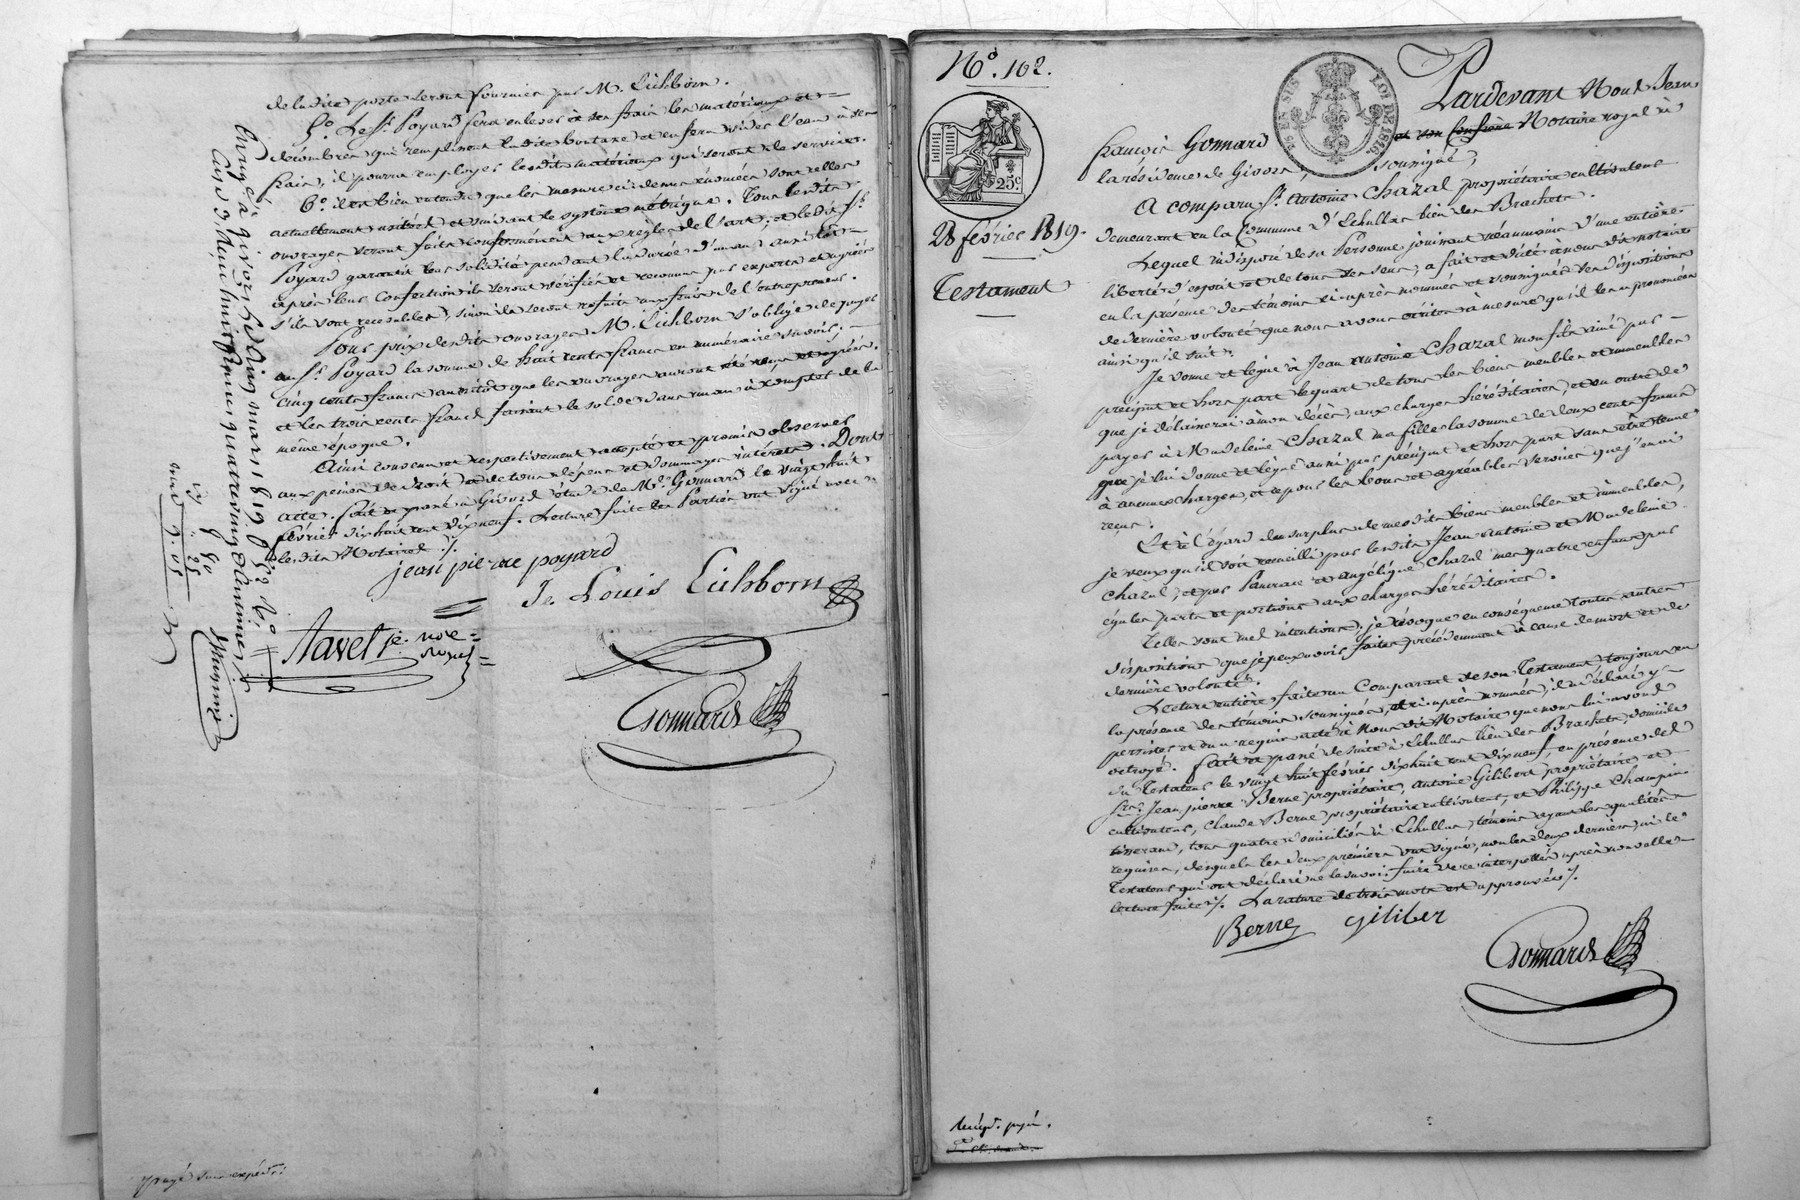 de ladite porte seront fournies par M. Eichborn.
5.o Le Sr. Poyard fera enlever à ses frais les matériaux et
décombres qui remplissent ladite fontaine et en fera vider l'eau à ses
frais, il pourra employer lesdits matériaux qui seront de service.
6.o il est bien entendu que les mesures ci-dessus énoncées sont celles
actuellement usitées et suivant le système métrique. Tous lesdits
ouvrages seront faits conformément aux règles de l'art, et ledit Sr.
Poyard garantit leur solidité pendant la durée d'un an, aussitôt
après leur confection ils seront vérifiés et reconnus par experts et agréés
s'ils sont recevables, sinon ils seront refaits aux frais de l'entrepreneur.
Pour prix desdits ouvrages M. Eichborn s'oblige de payer
au Sr. Poyard la somme de huit cents francs en numéraire savoir,
cinq cents francs aussitôt que les ouvrages auront été reçus et agréés,
et les trois cents francs faisant le solde dans un an à compter de la
même époque.
Ainsi convenu et respectivement accepté et promis observer
aux peines de droit et de tous dépens et dommages intérêts. Dont
acte. fait et passé à Givors étude de Me. Gonnard le vingt huit
février dix huit cent dix neuf. Lecture faite les Parties ont signé avec
lesdits Notaires ./.
jean pierre poyard
Je. Louis Eichborn
Favel je. nore
royal
Gonnard
Enregé à givors le cinq mars 1819. fo 52 Vo
payé sur expédon:
No. 102.
25c
28 février 1819.
Testament
EN SUS
LOI DE 1816
Pardevant Nous Jean
françois Gonnard et son Confrère Notaire royal à
la résidence de Givors, soussigné,
A comparu Sr. antoine Chazal propriétaire cultivateur
demeurant en la Commune d'Echallas lieu des Brachets.
Lequel indisposé de sa Personne jouissant néanmoins d'une entière
liberté d'esprit et de tous ses sens, a fait et dicté à nous dit notaire
en la présence des témoins ci-après nommés et soussignés ses dispositions
de dernière volonté que nous avons écrites à mesure qu'il les a prononcées
ainsi qu'il suit :
Je donne et lègue à Jean antoine Chazal mon fils ainé par
préciput et hors part le quart de tous les biens meubles et immeubles
que je délaisserai à mon décès, aux charges héréditaires, et en outre de
payer à Madeleine Chazal ma fille la somme de deux cents francs
que je lui donne et lègue aussi par préciput et hors part sans être tenue
à aucunes charges, et ce pour les bons et agréables services que j'en ai
reçus.
Et à l'égard du surplus de mesdits biens meubles et immeubles,
je veux qu'il soit recueilli par lesdits Jean antoine et Madeleine
Chazal, et par Pancrace et angélique Chazal mes quatre enfans par
égales parts et portions aux charges héréditaires.
Telles sont mes intentions, je révoque en conséquence toutes autres
dispositions que je peux avoir faites précédemment à cause de mort et de
dernière volonté.
Lecture entière faite au Comparant de son Testament toujours en
la présence des témoins soussignés, et ci-après nommés, il a déclaré y
persister et du a requis acte à Nous dit Notaire que nous lui avons
octroyé. fait et passé de suite à Echallas lieu des Brachets, domicile
du Testateur le vingt huit février dix huit cent dix neuf, en présence des
Srs. Jean pierre Berne propriétaire, antoine Gilibert propriétaire et
cultivateur, Claude Berne propriétaire cultivateur, et Philippe Champin
tisserand, tous quatre domiciliés à Echallas, témoins ayant les qualités
requises, desquels les deux premiers ont signé, non les deux derniers, ni le
Testateur qui ont déclaré ne le savoir faire de ce interpellés après nouvelle
lecture faite ./. La rature de trois mots est approuvée ./.
Berne
giliber
Gonnard